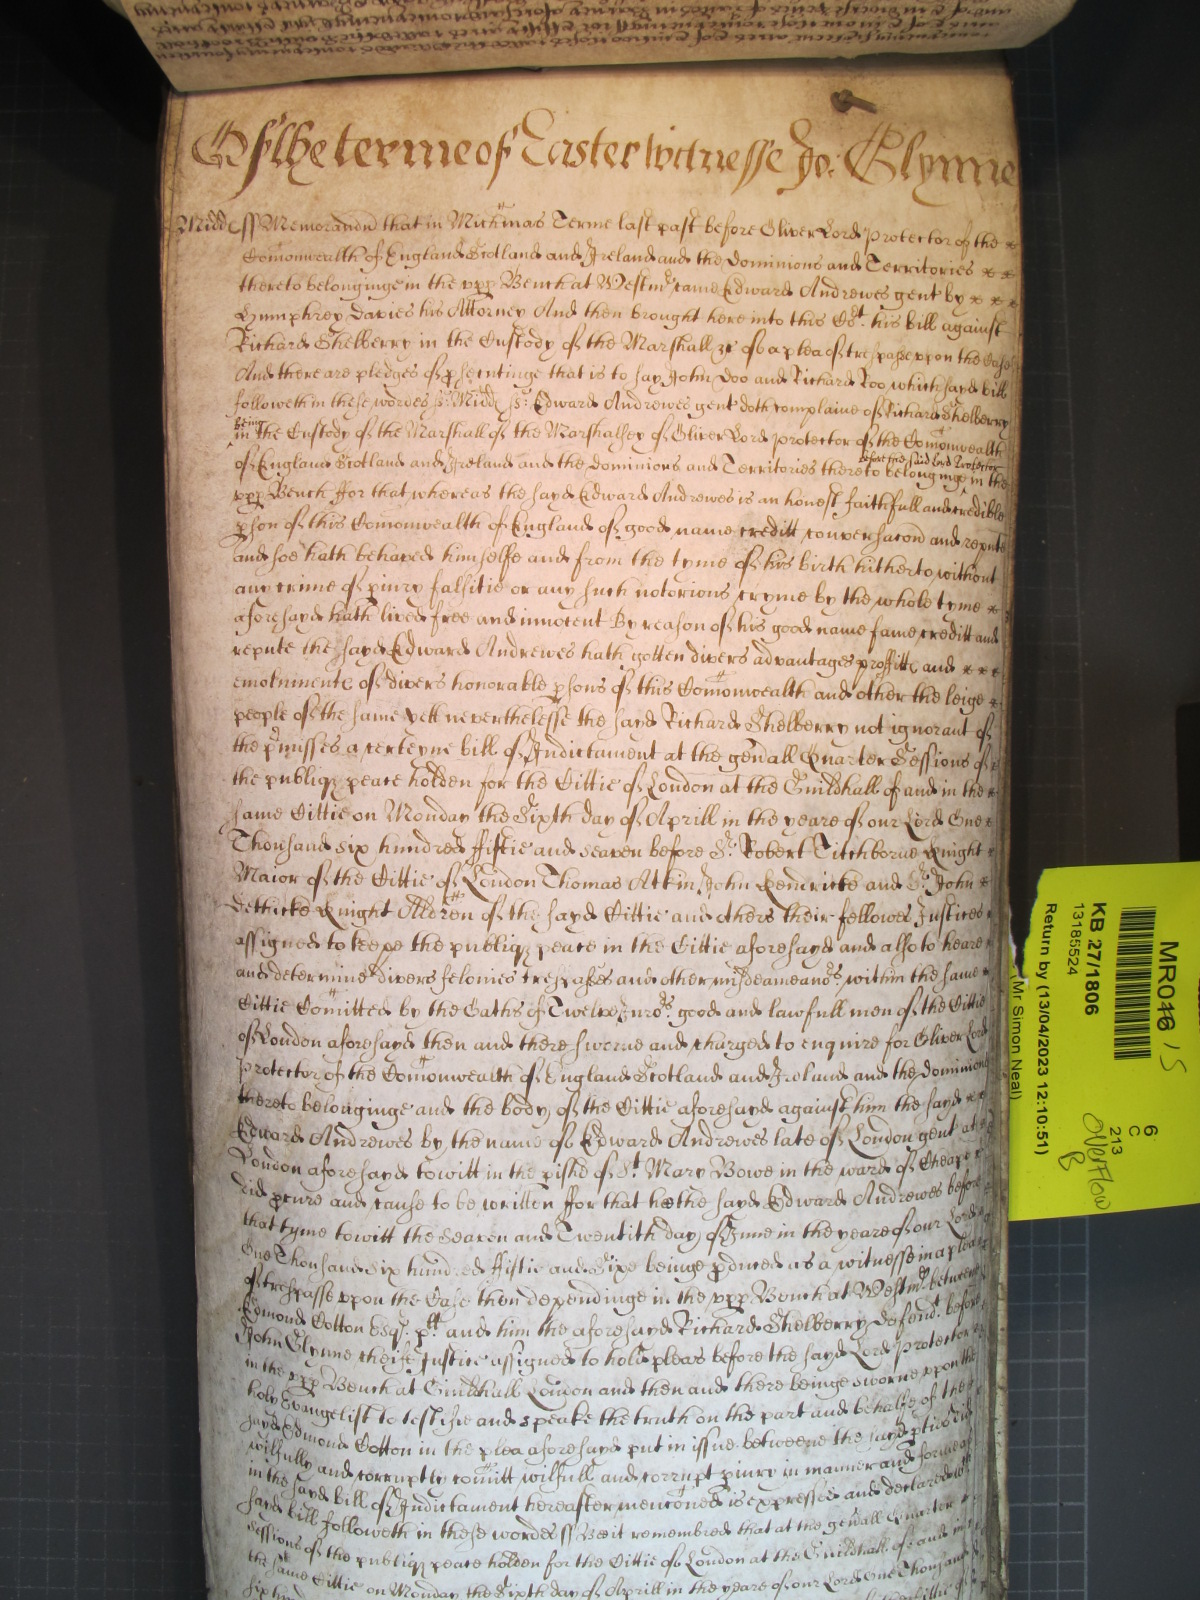 Of the terme of Easter witnesse Jo: Glynne
Midd ss Memorandu that in Michmas Terme last past before Oliver Lord Protector of the
Comonwealth of England Scotland and Ireland and the Dominions and Territories
thereto belonginge in the upp Bench at Westmr came Edward Andrewes gent by
Humphrey Davies his Attorney And then brought here into this Cort his bill against
Richard Shelberry in the Custody of the Marshall &c of a plea of trespasse upon the Case
And there are pledges of psecutinge that is to say John Doo and Richard Roo which sayd bill
followeth in these wordes ss: Midd ss: Edward Andrewes gent doth complaine of Richard Shelberry
being
in the Custody of the Marshall of the Marshalsey of Oliver Lord Protector of the Comonwealth
before the said Lord Protector
of England Scotland and Ireland and the Dominions and Territories thereto belonginge in the
upp Bench ffor that whereas the sayd Edward Andrewes is an honest faithfull and credible
pson of this Comonwealth of England of good name creditt conversacon and repute
and soe hath behaved himselfe and from the tyme of his birth hitherto without
any crime of piury falsitie or any such notorious cryme by the whole tyme
aforesayd hath lived free and innocent By reason of his good name fame creditt and
repute the sayd Edward Andrewes hath gotten divers advantages proffitte and
emolumente of divers honorable psons of this Comonwealth and other the leige
people of the same yett neverthelesse the sayd Richard Shelberry not ignorant of
the pmisses a certeyne bill of Indictament at the genall Quarter Sessions of
the publiq peace holden for the Cittie of London at the Guildhall of and in the
same Cittie on Monday the Sixth day of Aprill in the yeare of our Lord One
Thousand six hundred fiftie and seaven before Sr. Robert Titchborne Knight
Maior of the Cittie of London Thomas Atkin John Kendricke and Sr. John
Dethicke Knight Aldren of the sayd Cittie and others their fellowes Justices
assigned to keepe the publiq peace in the Cittie aforesayd and also to heare
and determine divers felonies trespasses and other misdeameanors within the same
Cittie Comitted by the Oaths of Twelve Jurors good and lawfull men of the Cittie
of London aforesayd then and there sworne and charged to enquire for Oliver Lord
Protector of the Comonwealth of England Scotland and Ireland and the dominions
thereto belonginge and the body of the Cittie aforesayd against him the sayd
Edward Andrewes by the name of Edward Andrewes late of London gent at
London aforesayd towitt in the pish of St. Mary Bowe in the ward of Cheape
did pcure and cause to be written ffor that hee the sayd Edward Andrewes before
that tyme towitt the Seaven and Twentith day of June in the yeare of our Lord
One Thousand Six hundred fiftie and Sixe beinge pduced as a witnesse in a plea
of trespasse upon the Case then dependinge in the upp Bench at Westmr betweene
Edmond Cotton Esqr. plt and him the aforesayd Richard Shelberry Defendt. before
John Glynne cheife Justice assigned to hold pleas before the sayd Lord Protector
in the upp Bench at Guildhall London and then and there beinge sworne upon the
holy Evangelist to testifie and speake the truth on the part and behalfe of the
sayd Edmond Cotton in the plea aforesayd put in issue betweene the sayd pties did
wilfully and corruptly comitt wilfull and corrupt piury in manner and forme as
in the sayd bill of Indictament hereafter menconed is expressed and declared wch
sayd bill followeth in these wordes ss Bee it remembred that at the genall Quarter
Sessions of the publiq peace holden for the Cittie of London at the Guildhall of and in
the same Cittie on Monday the Sixth day of Aprill in the yeare of our Lord One Thousand
MR046 15
KB 27/1806
13185524
Return by (13/04/2023 12:10:51)
Mr Simon Neal)
6
C
213
Overflow
B